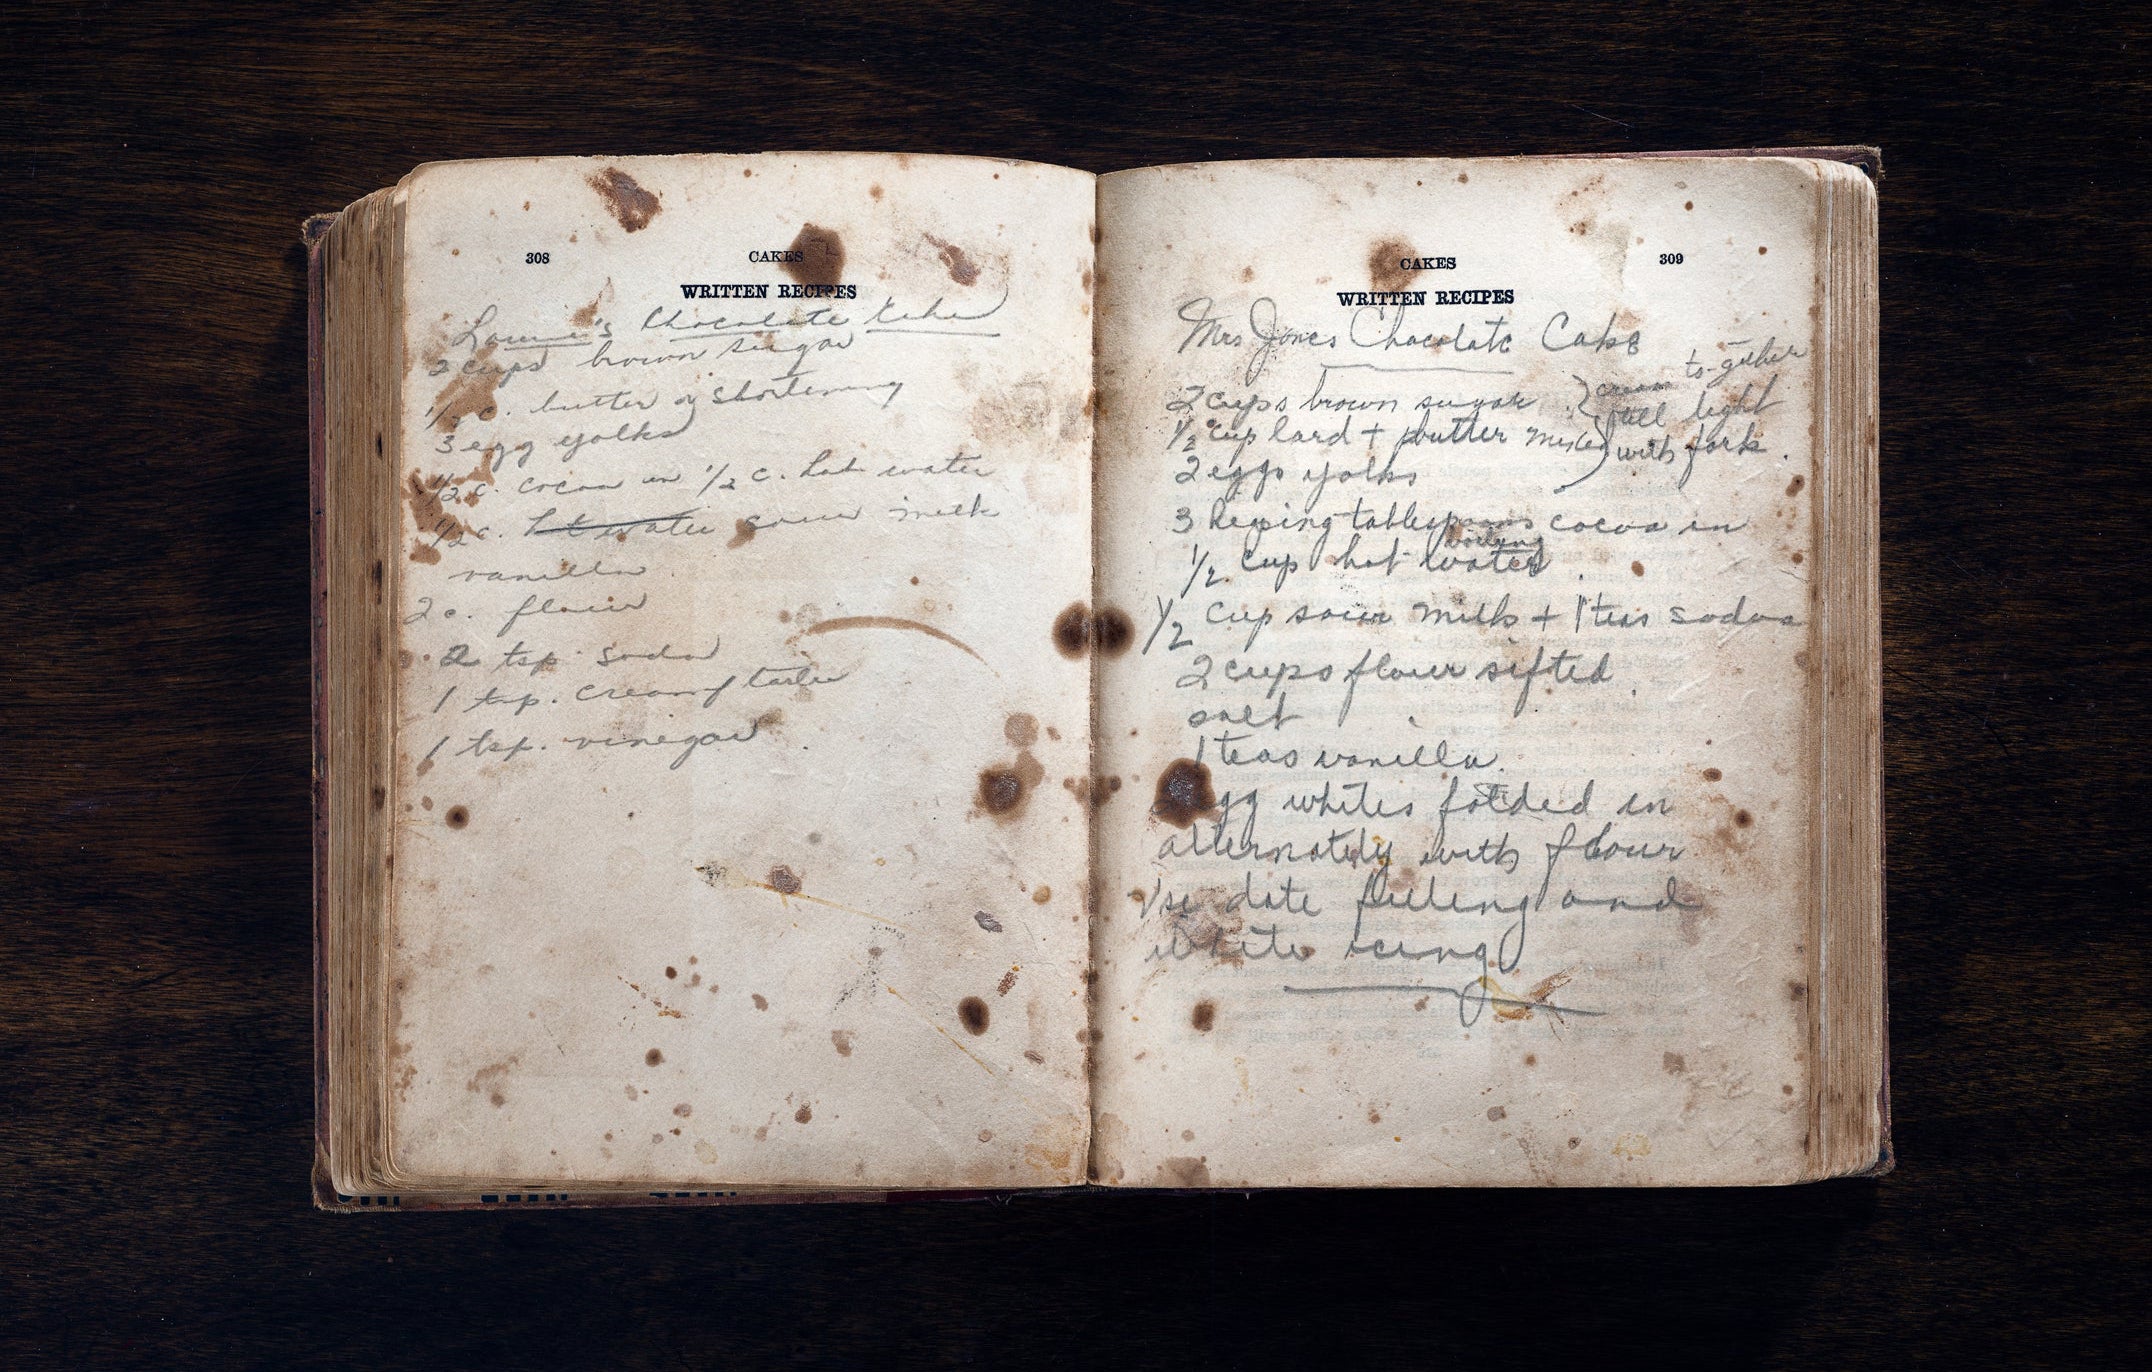 308
CAKES
WRITTEN RECIPES
Chocolate Cake
2 cups brown sugar
1/2 c. butter or shortening
3 egg yolks
1/2 c. cocoa in 1/2 c. hot water
1/2 c. hot water sour milk
vanilla
2 c. flour
2 tsp soda
1 tsp. cream of tartar
1 tsp. vinegar
CAKES
309
WRITTEN RECIPES
Mrs Jones Chocolate Cake
2 cups brown sugar } cream to-gether
1/2 cup lard + butter mixed till light
2 eggs yolks with fork.
3 heaping tablespoons cocoa in
boiling
1/2 cup hot water.
1/2 cup sour milk + 1 teas soda
2 cups flour sifted
salt
1 teas vanilla.
whites folded in
alternately with flour
Use date filling and
white icing